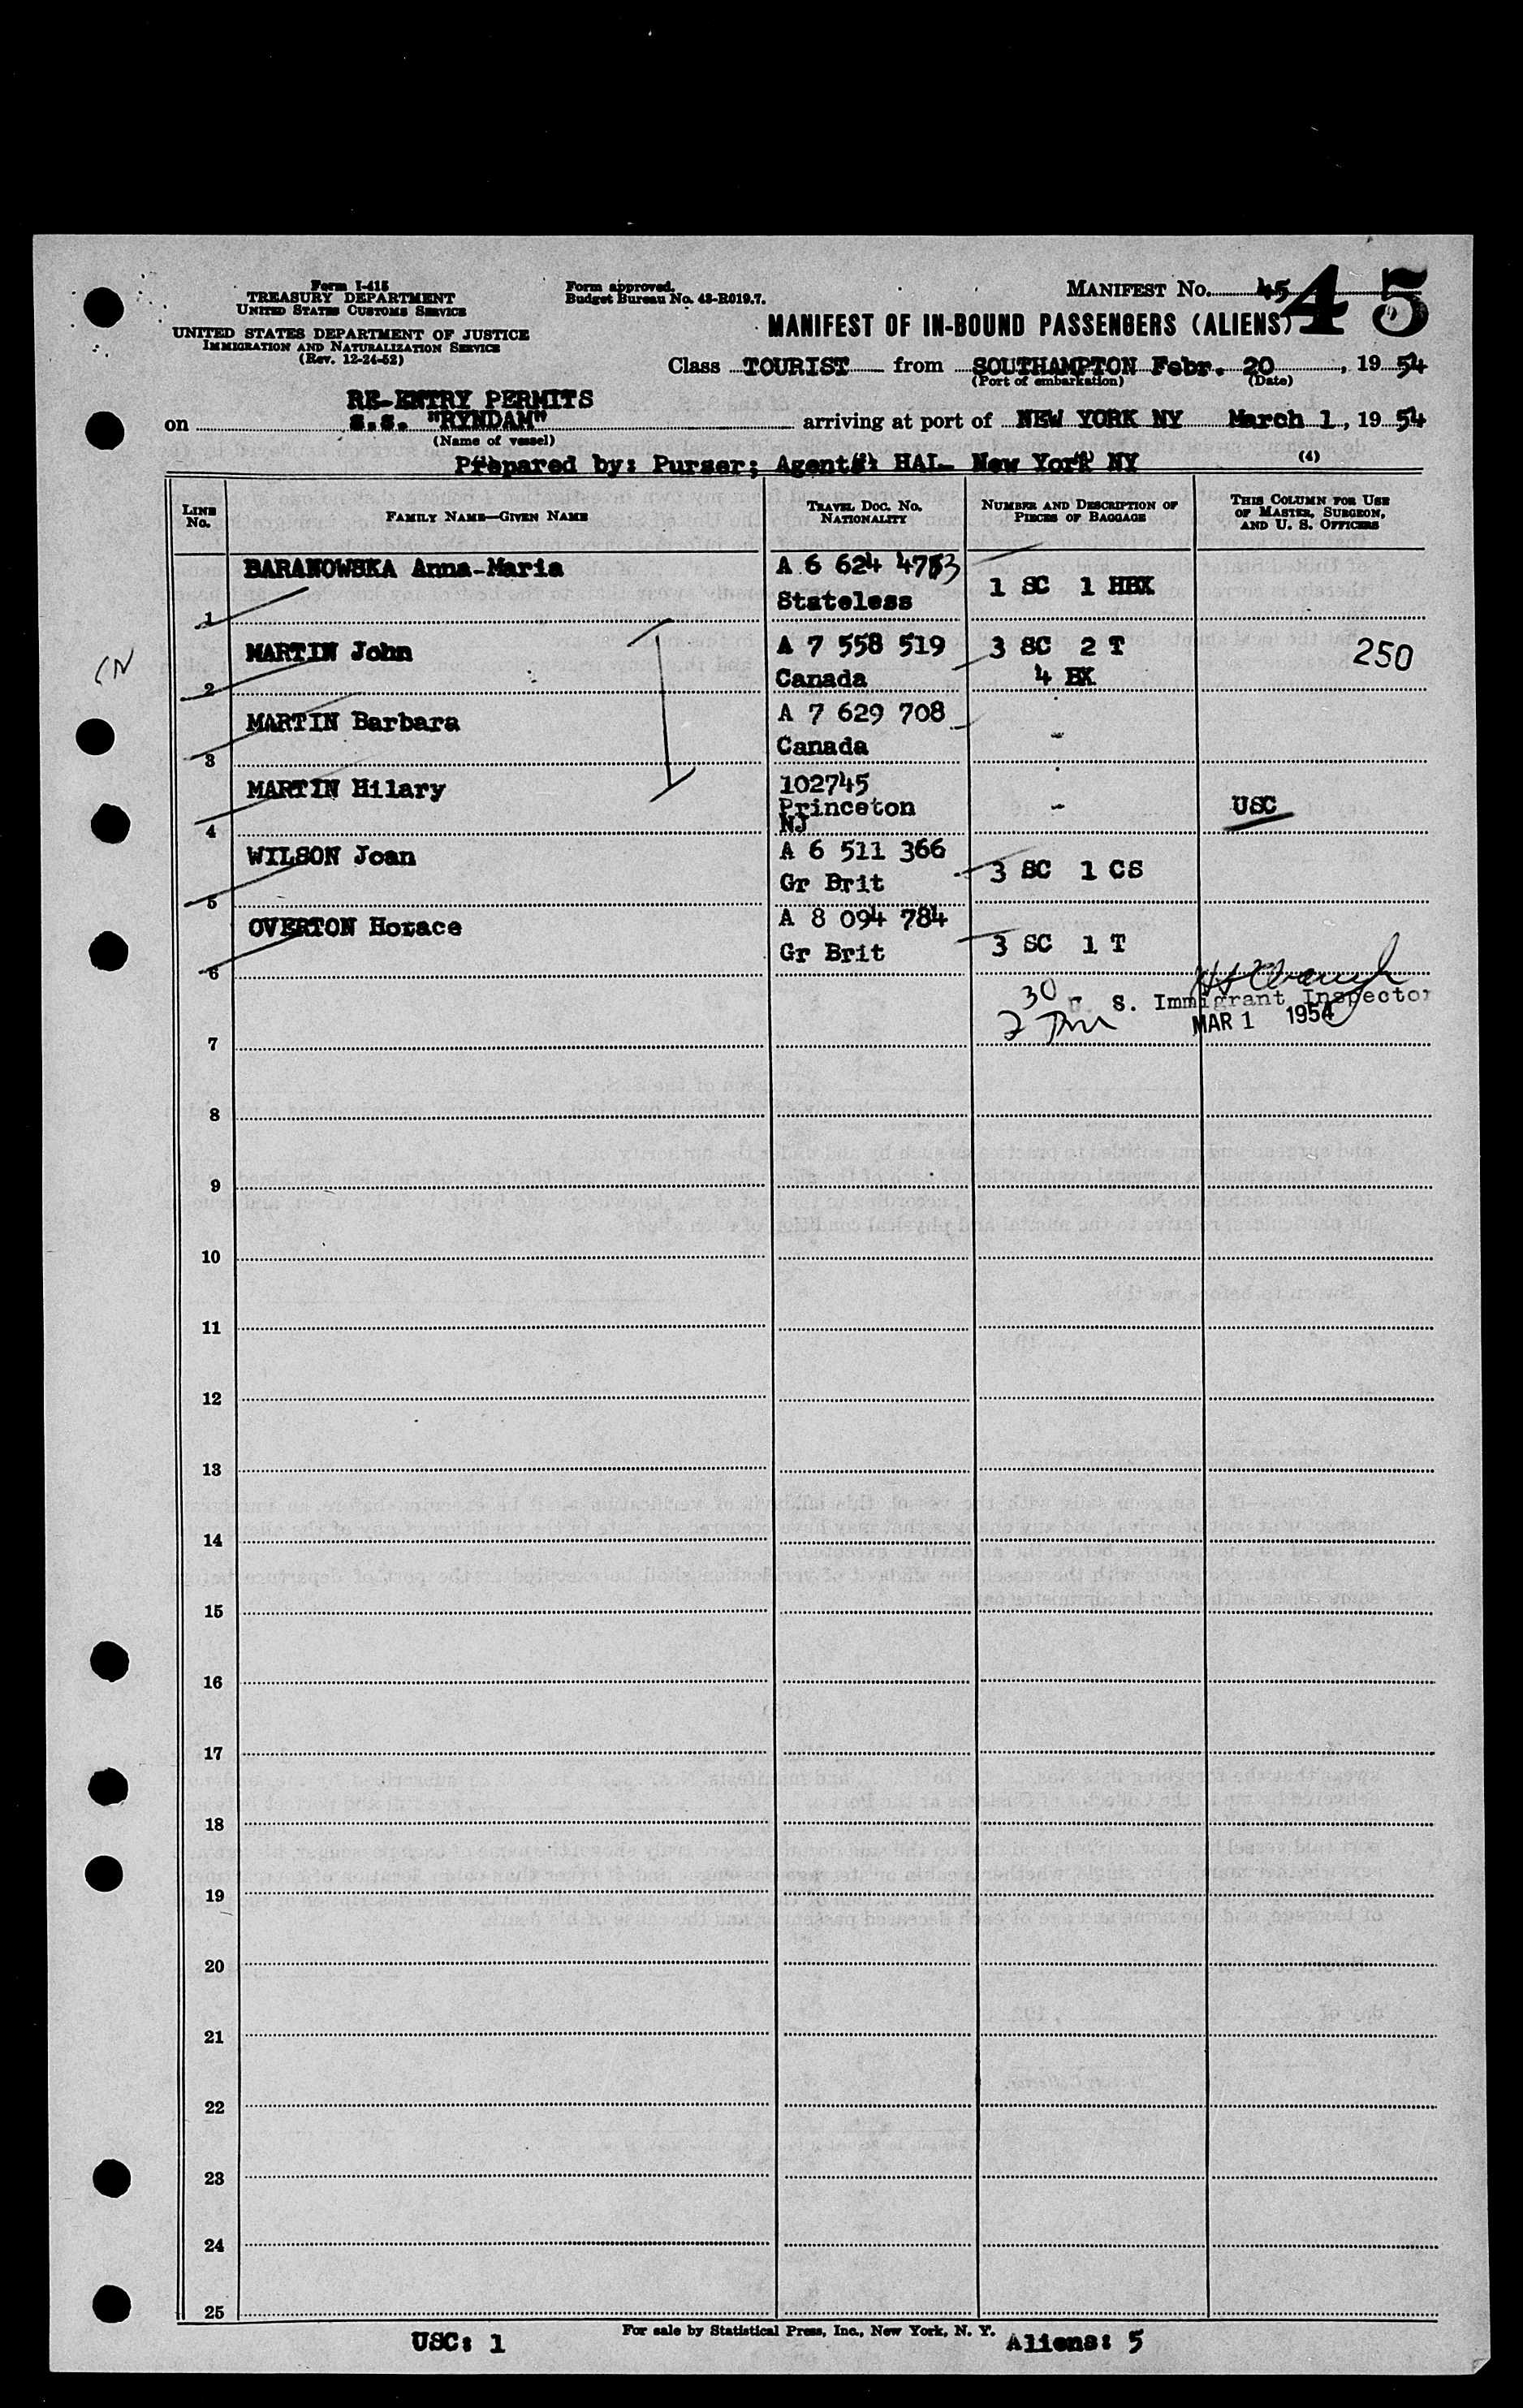 Form I-415
TREASURY DEPARTMENT
UNITED STATES CUSTOMS SERVICE
UNITED STATES DEPARTMENT OF JUSTICE
IMMIGRATION AND NATURALIZATION SERVICE
(Rev. 12-24-52)
Form approved.
Budget Bureau No. 43-R019.7.
MANIFEST NO. 45
45
MANIFEST OF IN-BOUND PASSENGERS (ALIENS)
Class TOURIST from SOUTHAMPTON Febr. 20, 1954
(Port of embarkation) (Date)
RE-ENTRY PERMITS
on S.S. "RYNDAM" arriving at port of NEW YORK NY March 1, 1954
(Name of vessel)
Prepared by: Purser; Agent: HAL- New York NY (4)
LINE No. FAMILY NAME—GIVEN NAME TRAVEL DOC. NO. NATIONALITY NUMBER AND DESCRIPTION OF PIECES OF BAGGAGE THIS COLUMN FOR USE OF MASTER, SURGEON, AND U. S. OFFICERS
1 BARANOWSKA Anna-Maria A 6 624 4753 1 SC 1 HBX
Stateless
2 MARTIN John A 7 558 519 3 SC 2 T 250
Canada 4 BX
3 MARTIN Barbara A 7 629 708 -
Canada
4 MARTIN Hilary 102745 - USC
Princeton
NJ
5 WILSON Joan A 6 511 366 3 SC 1 CS
Gr Brit
6 OVERTON Horace A 8 094 784 3 SC 1 T
Gr Brit
2 30 pm
U. S. Immigrant Inspector
MAR 1 1954
7
8
9
10
11
12
13
14
15
16
17
18
19
20
21
22
23
24
25
USC: 1 For sale by Statistical Press, Inc., New York, N. Y. Aliens: 5